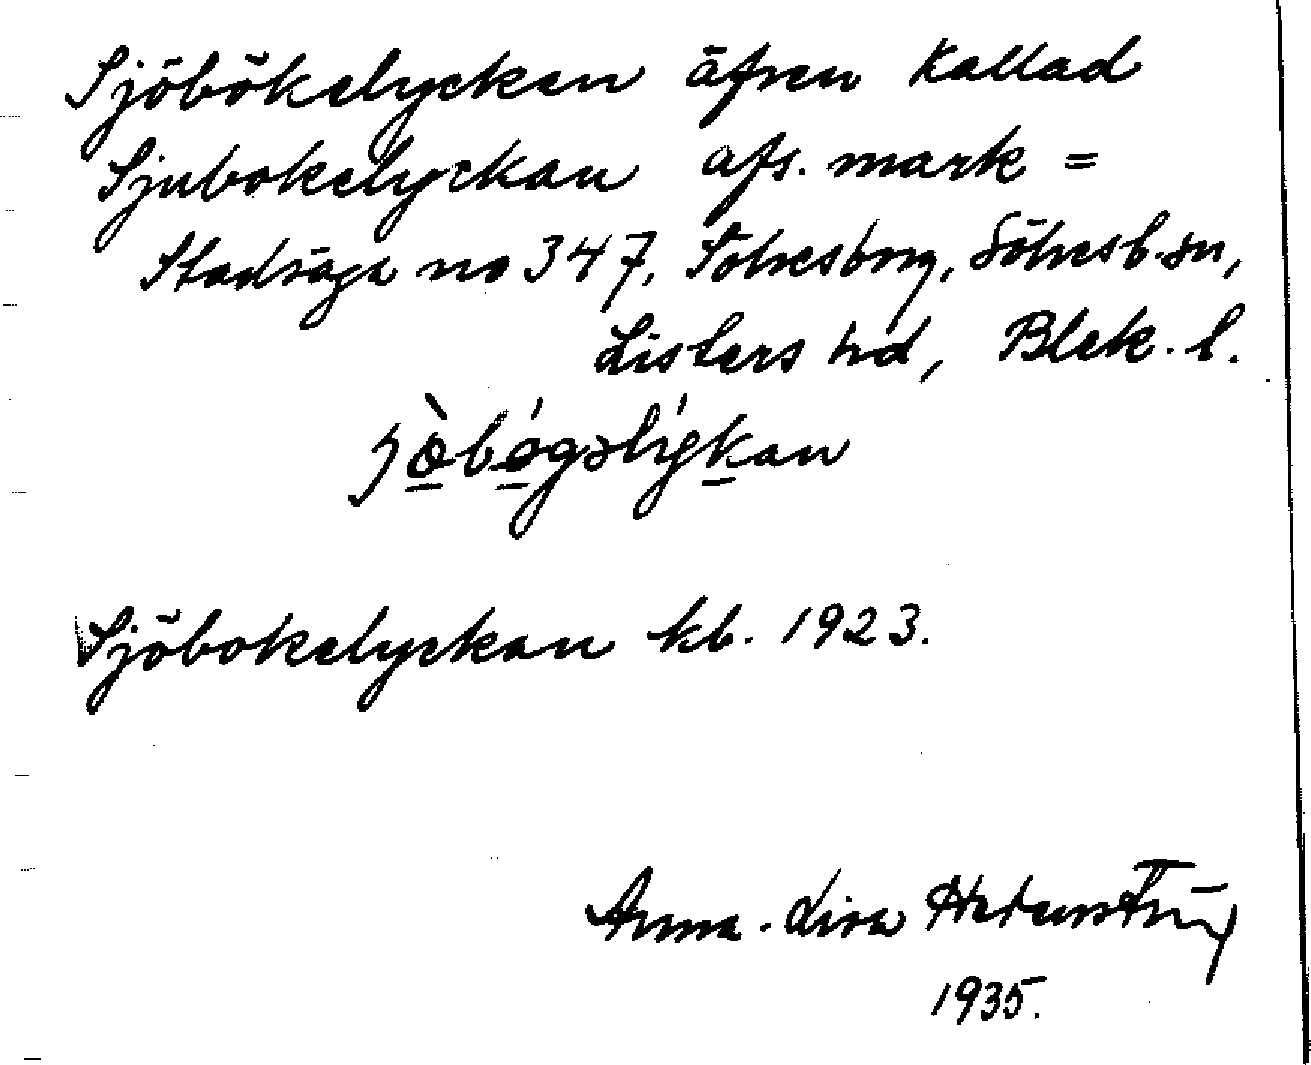 Sjöbökelycken äfven kallad
Sjubokelyckan afs. mark =
Stadsäga no 347, Sölvesborg, Sölvesb. sn,
Listers hd, Blek. l.
Sjöbokelyckan kb. 1923.
Anna-Lisa
1935.